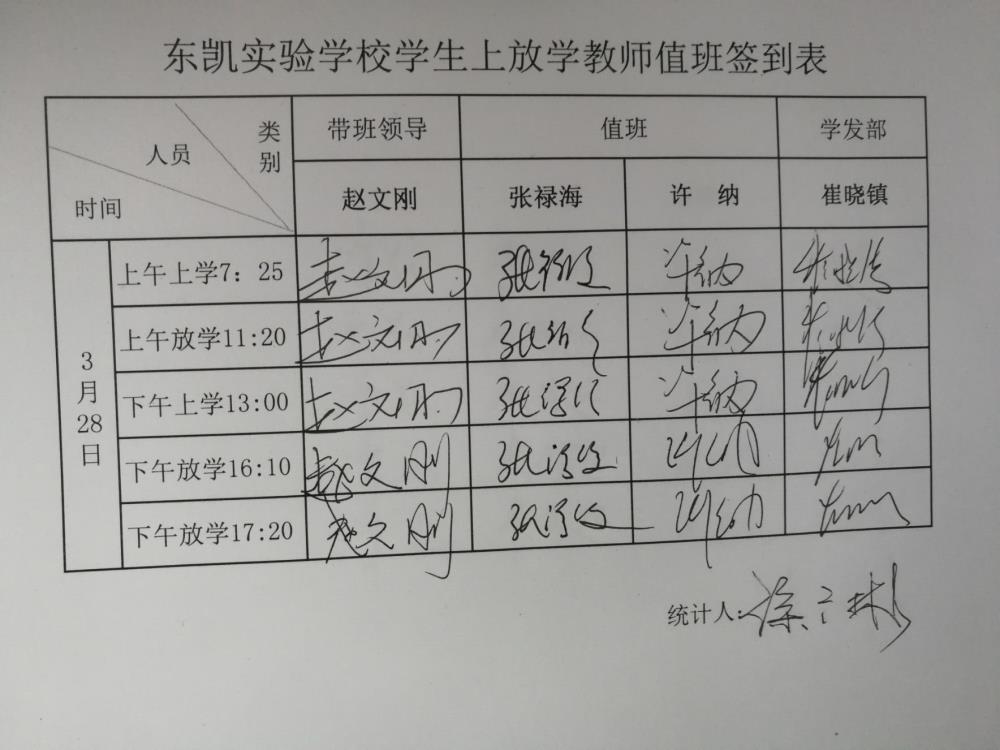 东凯实验学校学生上放学教师值班签到表
类别 人员 时间 带班领导 值班 学发部
赵文刚 张禄海 许 纳 崔晓镇
3月28日
上午上学7：25 赵文刚 张禄海 许纳
上午放学11:20 赵文刚 张禄海 许纳
下午上学13:00 赵文刚 张禄海 许纳
下午放学16:10 赵文刚 张禄海 许纳
下午放学17:20 赵文刚 张禄海 许纳
统计人: